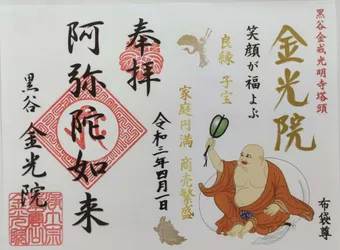 黒谷金戒光明寺塔頭
金光院
笑顔が福よぶ
良縁 子宝
家庭円満 商売繁盛
布袋尊
奉拝
令和三年四月一日
阿弥陀如来
黒谷 金光院